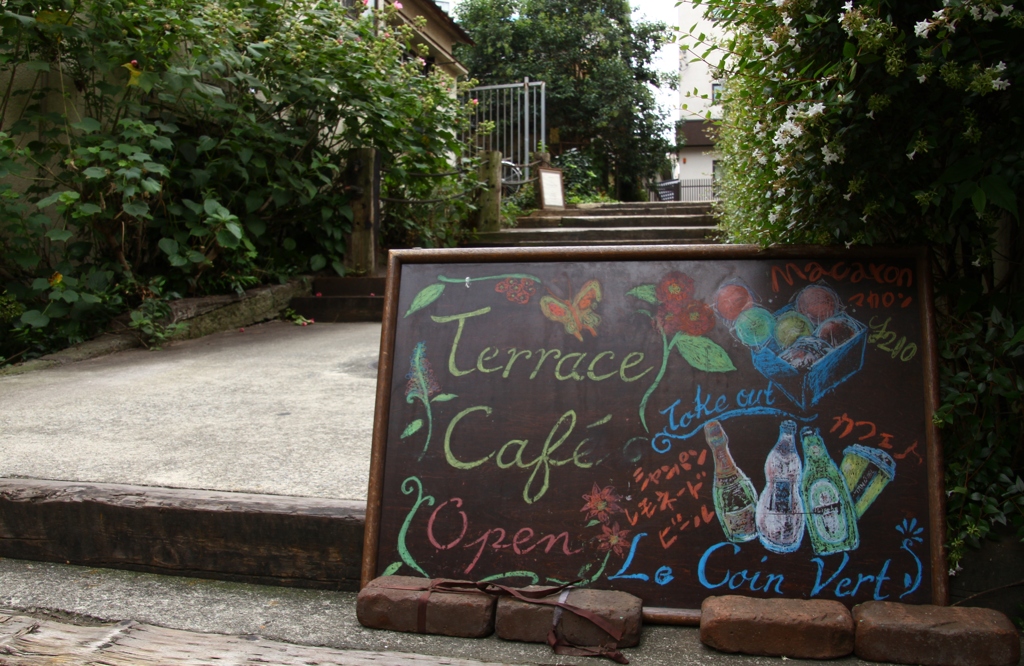 Terrace
Café
Open
Macaron
マカロン
£210
Take out
カフェオーレ
シャンパン
レモネード
ビール
Le Coin Vert